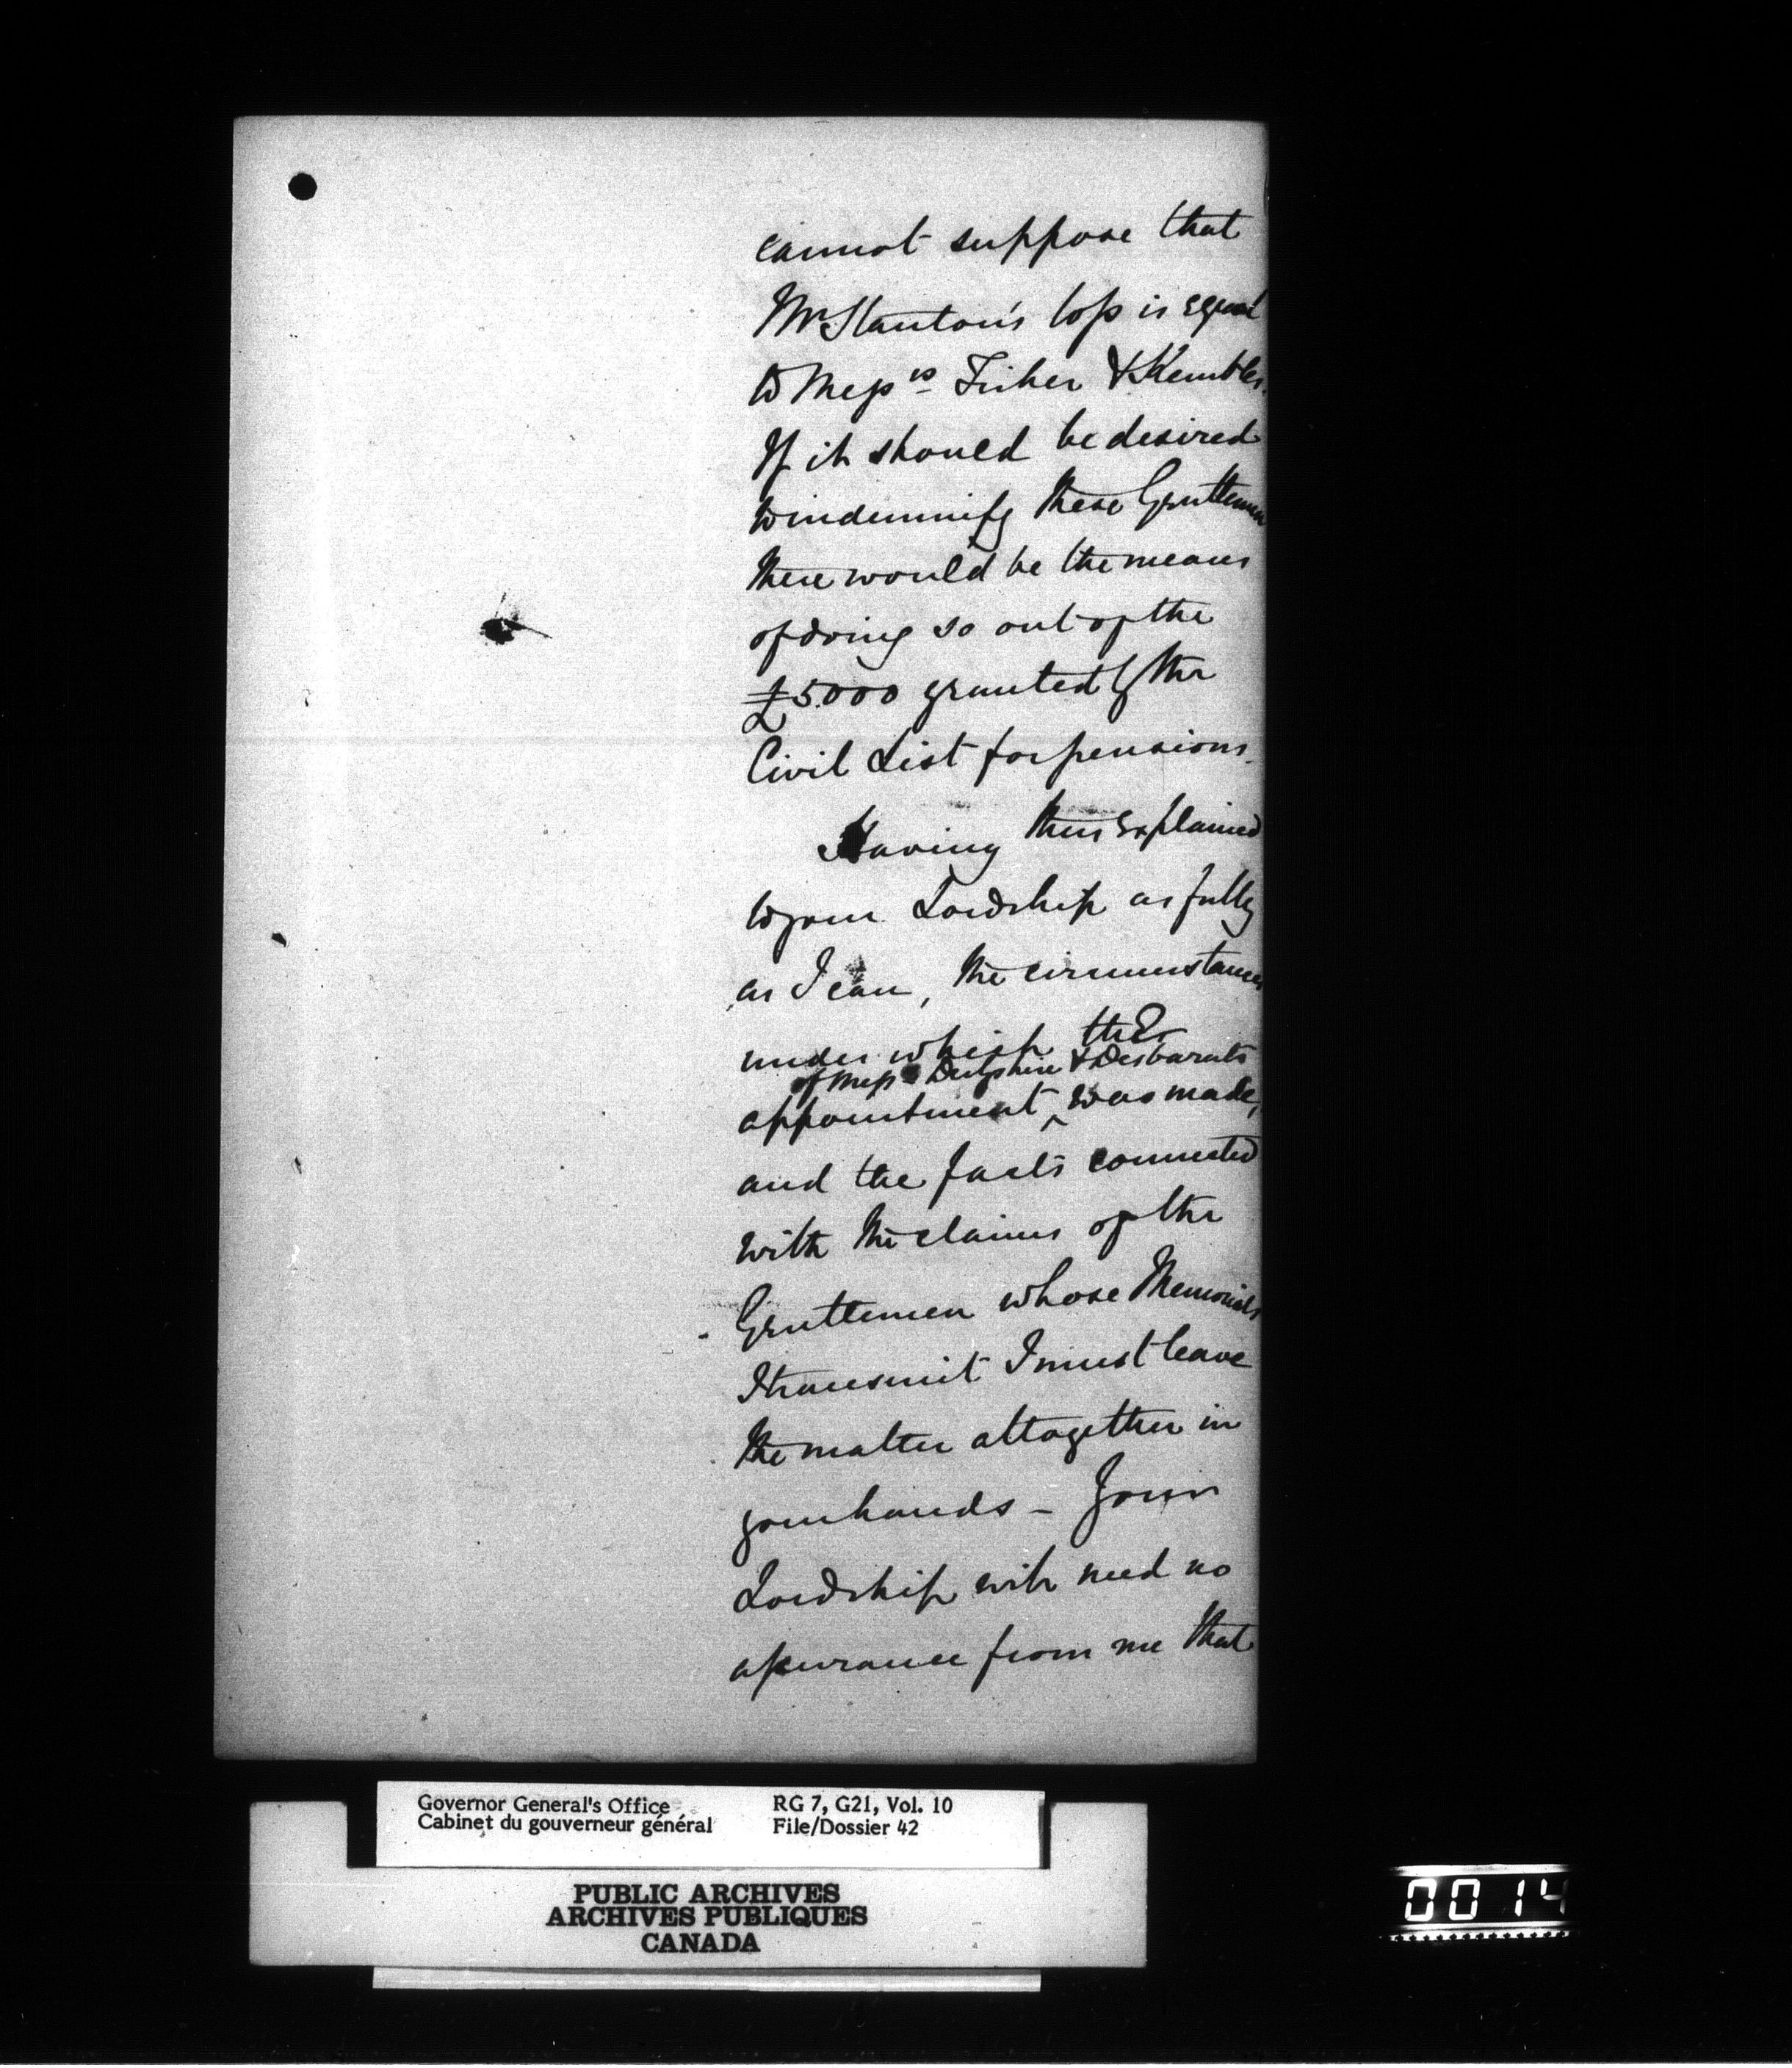 cannot suppose that
Mr Stanton's loss is equal
to Messrs Fisher & Kembles.
If it should be desired
to indemnify these Gentlemen
there would be the means
of doing so out of the
£5000 granted by the
Civil List for pensions.
Having thus explained
to your Lordship as fully
as I can, the circumstances
under which the
of Messrs Derbishire & Desbarats
appointment ^ was made,
and the facts connected
with the claims of the
Gentlemen whose Memorials
I transmit I must leave
the matter altogether in
your hands - Your
Lordship will need no
assurance from me that
Governor General's Office
Cabinet du gouverneur général
RG 7, G21, Vol. 10
File/Dossier 42
PUBLIC ARCHIVES
ARCHIVES PUBLIQUES
CANADA
0014